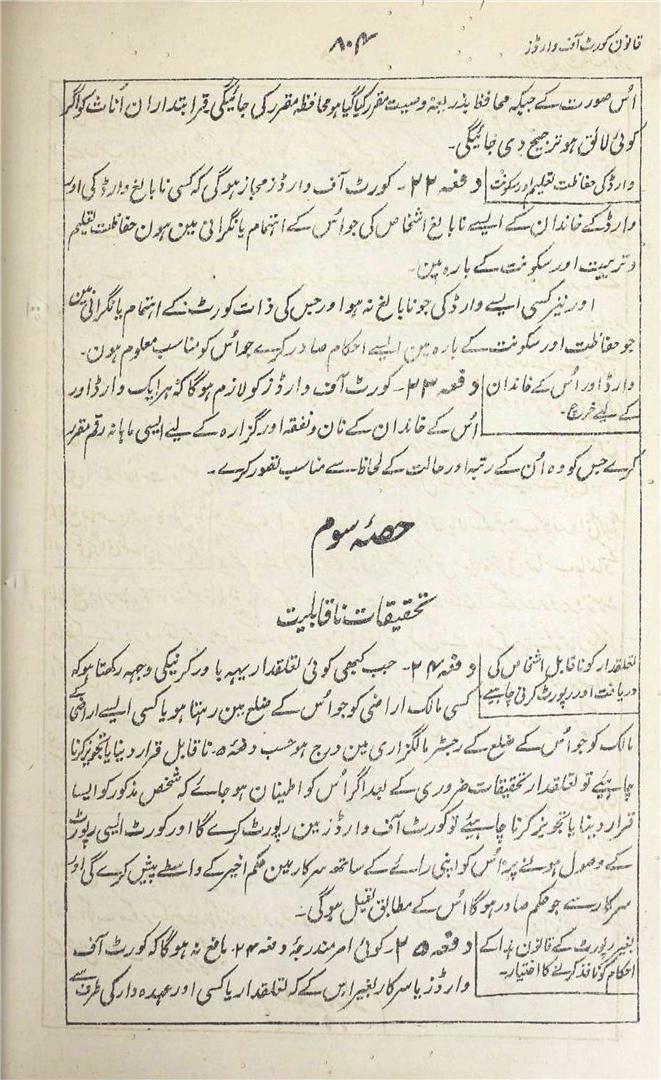 قانون کورٹ آف وارڈز
۸۰۴
اُس صورت کے جبکہ محافظ بذریعۂ وصیت مقرر کیا گیا ہو محافظہ مقرر کی جائیگی۔ قرابتداران اُناث کو اگر
کوئی لائق ہو ترجیح دی جائیگی۔
وارڈ کی حفاظت تعلیم اور سکونت
دفعہ ۲۲۔ کورٹ آف وارڈز مجاز ہوگی کہ کسی نابالغ وارڈ کی اور
وارڈ کے خاندان کے ایسے نابالغ اشخاص کی جو اُس کے اہتمام یا نگرانی مین ہون حفاظت تعلیم
و تربیت اور سکونت کے بارہ مین۔
اور نیز کسی ایسے وارڈ کی جو نابالغ نہ ہو اور جس کی ذات کورٹ کے اہتمام یا نگرانی مین
ہو حفاظت اور سکونت کے بارہ مین ایسے احکام صادر کرے جو اُس کو مناسب معلوم ہون۔
وارڈ اور اُس کے خاندان
کے لیے خرچ۔
دفعہ ۲۳۔ کورٹ آف وارڈز کو لازم ہوگا کہ ہر ایک وارڈ اور
اُس کے خاندان کے نان و نفقہ اور گزارہ کے لیے ایسی ماہانہ رقم مقرر
کرے جس کو وہ اُن کے رتبہ اور حالت کے لحاظ سے مناسب تصور کرے۔
حصۂ سوم
تحقیقات ناقابلیت
تعلقدار کو ناقابل اشخاص کی
دریافت اور رپورٹ کرنی چاہیے
دفعہ ۲۴۔ جب کبھی کوئی تعلقدار یہہ باور کرنیکی وجہہ رکھتا ہو کہ
کسی مالک اراضی کو جو اُس کے ضلع مین رہتا ہو یا کسی ایسے اراضی کے
مالک کو جو اُس کے ضلع کے رجسٹر مالگزاری مین درج ہو حسب دفعہ ۵۔ ناقابل قرار دینا یا تجویز کرنا
چاہیئے تو تعلقدار تحقیقات ضروری کے بعد اگر اُس کو اطمینان ہو جائے کہ شخص مذکور کو ایسا
قرار دینا یا تجویز کرنا چاہیئے تو کورٹ آف وارڈز مین رپورٹ کرے گا اور کورٹ ایسی رپورٹ
کے وصول ہونے پر اُس کو اپنی رائے کے ساتھ سرکار مین حکم اخیر کے واسطے پیش کرے گی اور
سرکار سے جو حکم صادر ہوگا اُس کے مطابق تعمیل ہوگی۔
بغیر رپورٹ کے قانون ہذا کے
احکام کو نافذ کرنے کا اختیار۔
دفعہ ۲۵۔ کوئی امر مندرجۂ دفعہ ۲۴۔ مانع نہ ہوگا کہ کورٹ آف
وارڈز یا سرکار بغیر اس کے کہ تعلقدار یا کسی اور عہدہ دار کی طرف سے